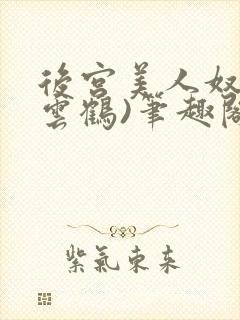 後宮美人奴
雲鶴)筆趣閣
紫氣東来